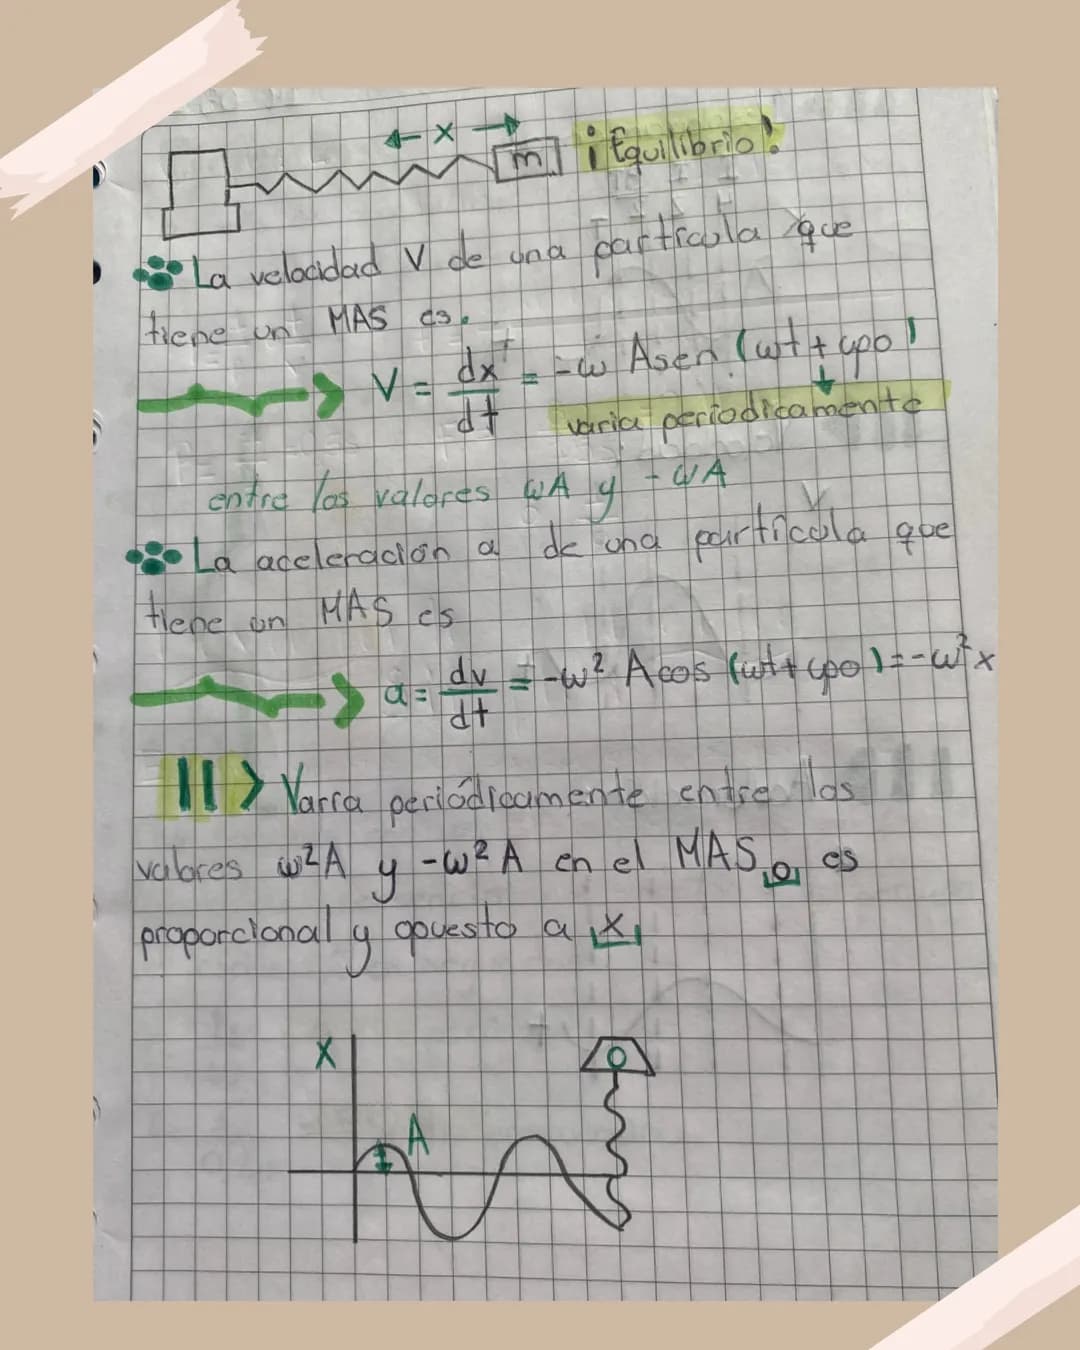 x
m ¡Equilibrio!
La velocidad V de una partícula que
tiene un MAS es.
V = dx/dt = -ω Asen (ωt + φo)
varia periodicamente
entre los valores ωA y -ωA
La aceleración a de una partícula que
tiene un MAS es
a = dv/dt = -ω² A cos (ωt + φo) = -ω² x
Varía periódicamente entre los
valores ω²A y -ω²A en el MAS, a es
proporcional y opuesto a x
X
A